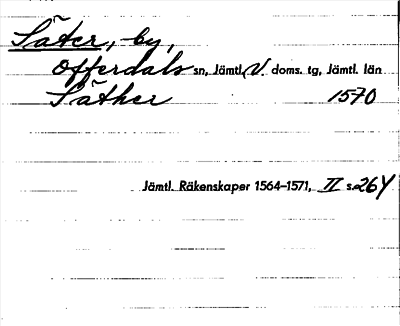 Säter, by,
Offerdals sn, Jämtl. V. doms. tg, Jämtl. län
Säther 1570
Jämtl. Räkenskaper 1564–1571, II s. 264